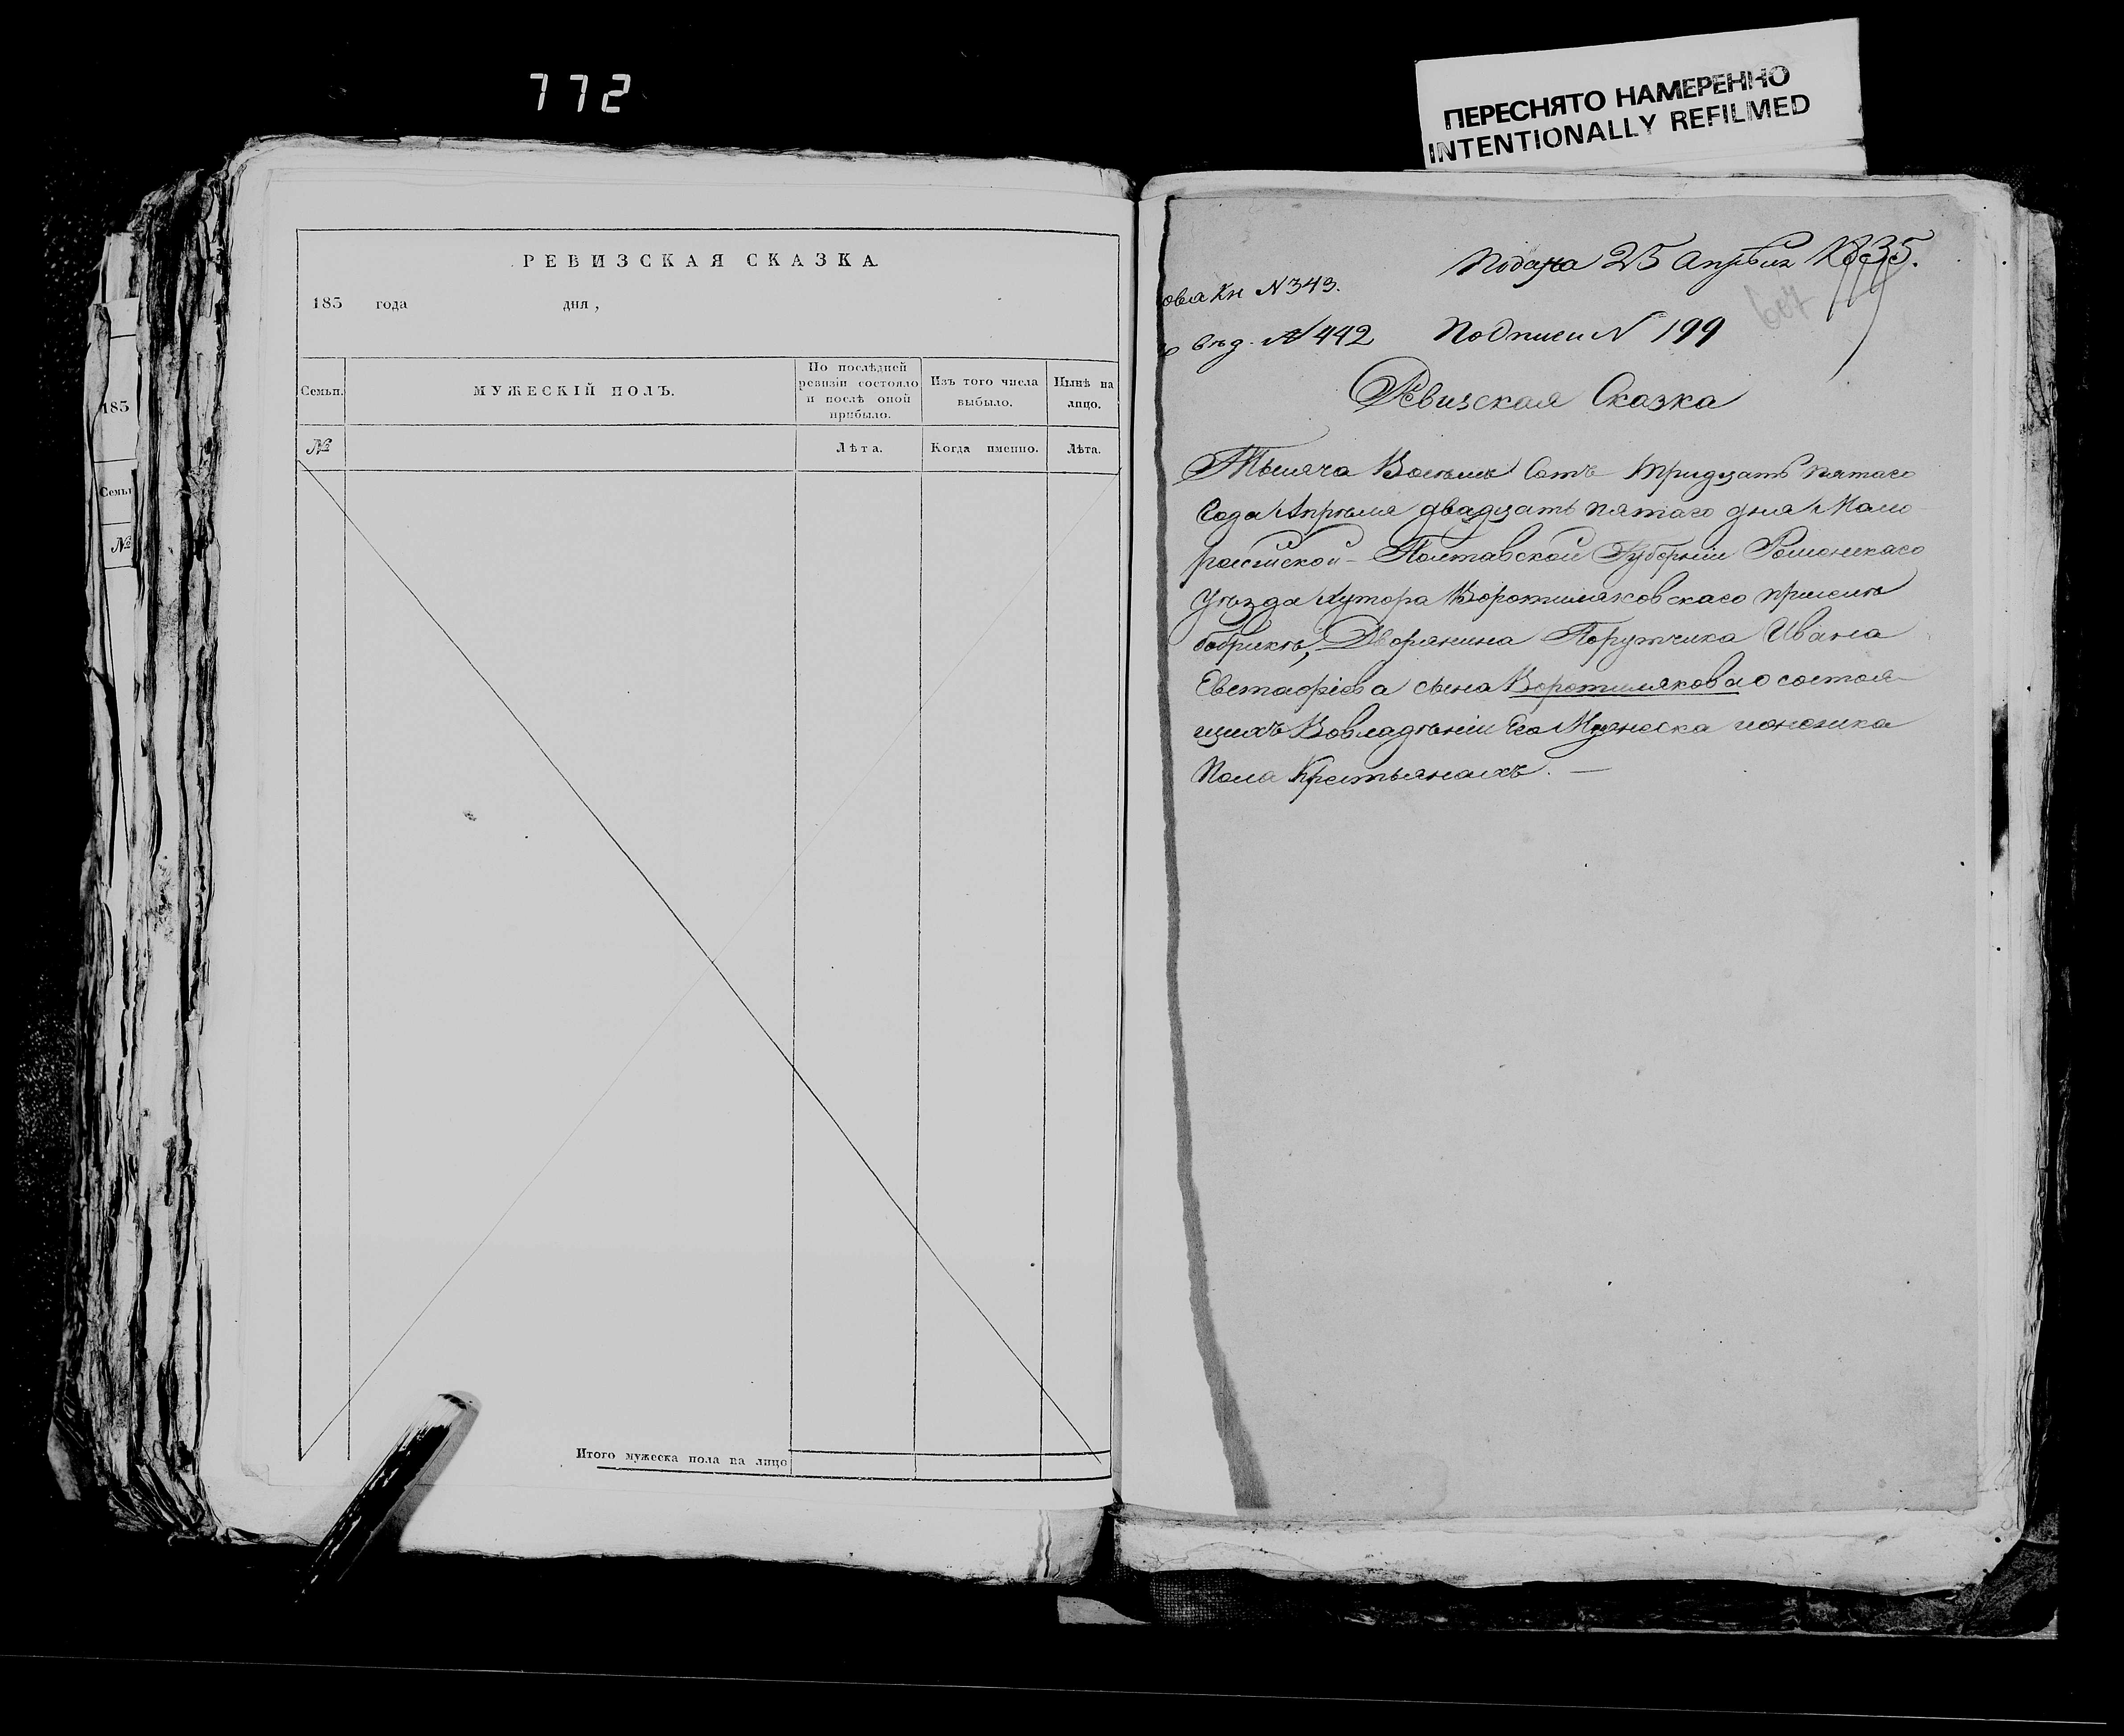 772
ПЕРЕСНЯТО НАМЕРЕННО
INTENTIONALLY REFILMED
185
Семьи
№
РЕВИЗСКАЯ СКАЗКА
185 года дня,
Семьи. МУЖЕСКІЙ ПОЛЪ. По послѣдней ревизіи состояло и послѣ оной прибыло. Изъ того числа выбыло. Нынѣ на лицо.
№ Лѣта. Когда именно. Лѣта.
Итого мужеска пола на лицо
Подана 25 Апрѣля 1835.
ова Кн N 343.
607
вѣд. N 442 По описи N 199
Ревизская Сказка
Тысяча Восемь Сотъ тридцать пятаго
Года Апрѣля двадцать пятаго дня Мало
россійской - Полтавской Губерніи Роменскаго
уѣзда Хутора Воротиляковскаго при селѣ
бобрикѣ, Дворянина Порутчика Ивана
Евстафіева сына Воротилякова о состоя-
щихъ Вовладѣніи Его Мужеска и женска
Пола Крестьянахъ. —